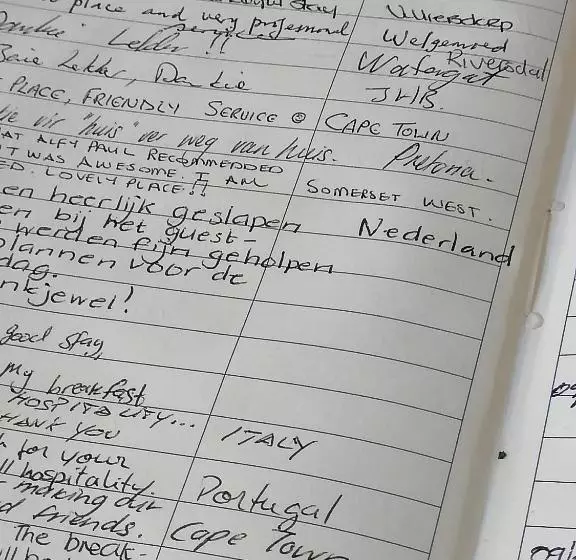 place and very professional
service!! Uniersdorp
Dankie Lekker !! Welgemoed
Riversdal
Baie Lekker, Dankie
JHB.
PLACE, FRIENDLY SERVICE ☺ CAPE TOWN
vir "huis" ver weg van huis. Pretoria.
AT ALFY PAUL RECOMMENDED
IT WAS AWESOME. I AM SOMERSET WEST.
ED. LOVELY PLACE!!
en heerlijk geslapen Nederland
en bij het guest-
werden fijn geholpen
plannen voor de
dag.
nkjewel!
good stay
My breakfast
HOSPITALITY...
HANK YOU ITALY
for your
ll hospitality. Portugal
making our
d friends. Cape Town
The break-